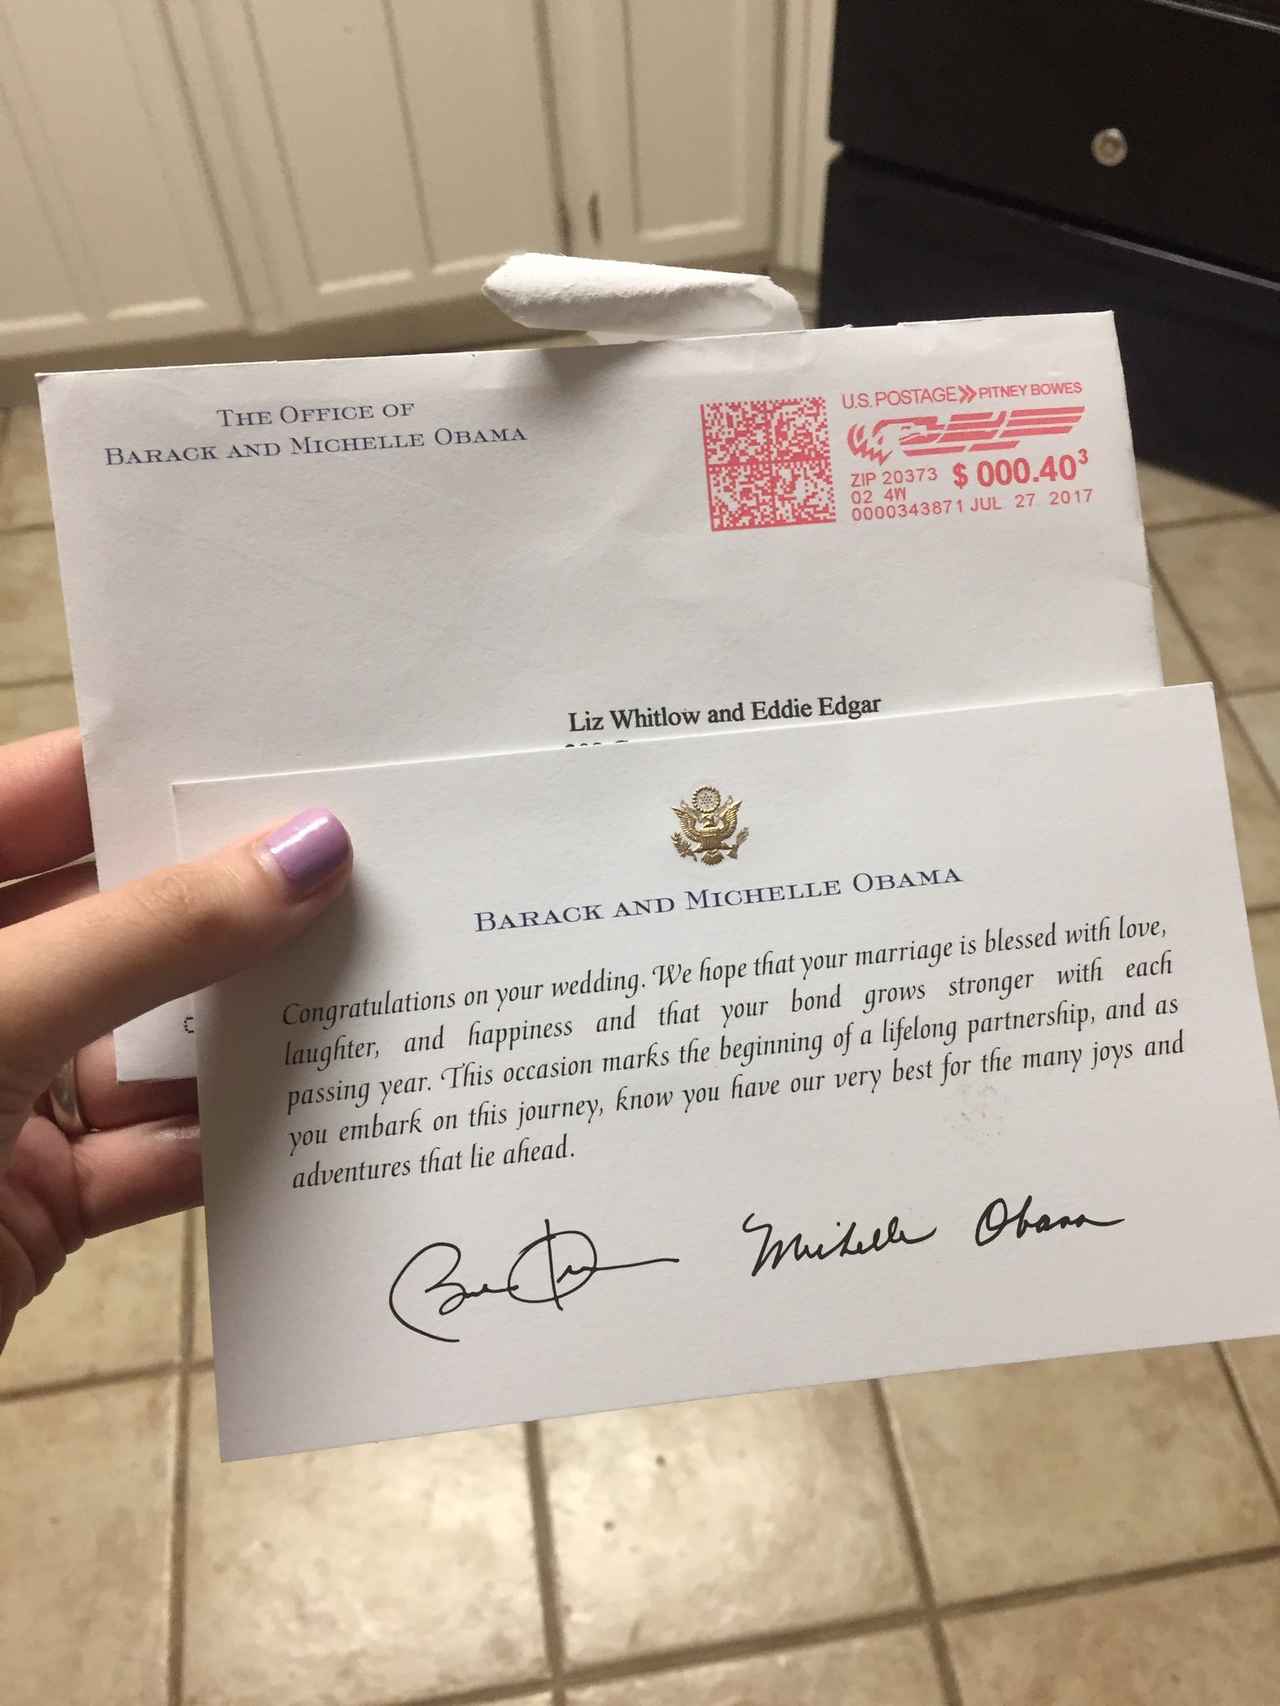 THE OFFICE OF
BARACK AND MICHELLE OBAMA
U.S. POSTAGE PITNEY BOWES
ZIP 20373 $ 000.40³
02 4W
0000343871 JUL 27 2017
Liz Whitlow and Eddie Edgar
BARACK AND MICHELLE OBAMA
Congratulations on your wedding. We hope that your marriage is blessed with love,
laughter, and happiness and that your bond grows stronger with each
passing year. This occasion marks the beginning of a lifelong partnership, and as
you embark on this journey, know you have our very best for the many joys and
adventures that lie ahead.
Michelle Obama